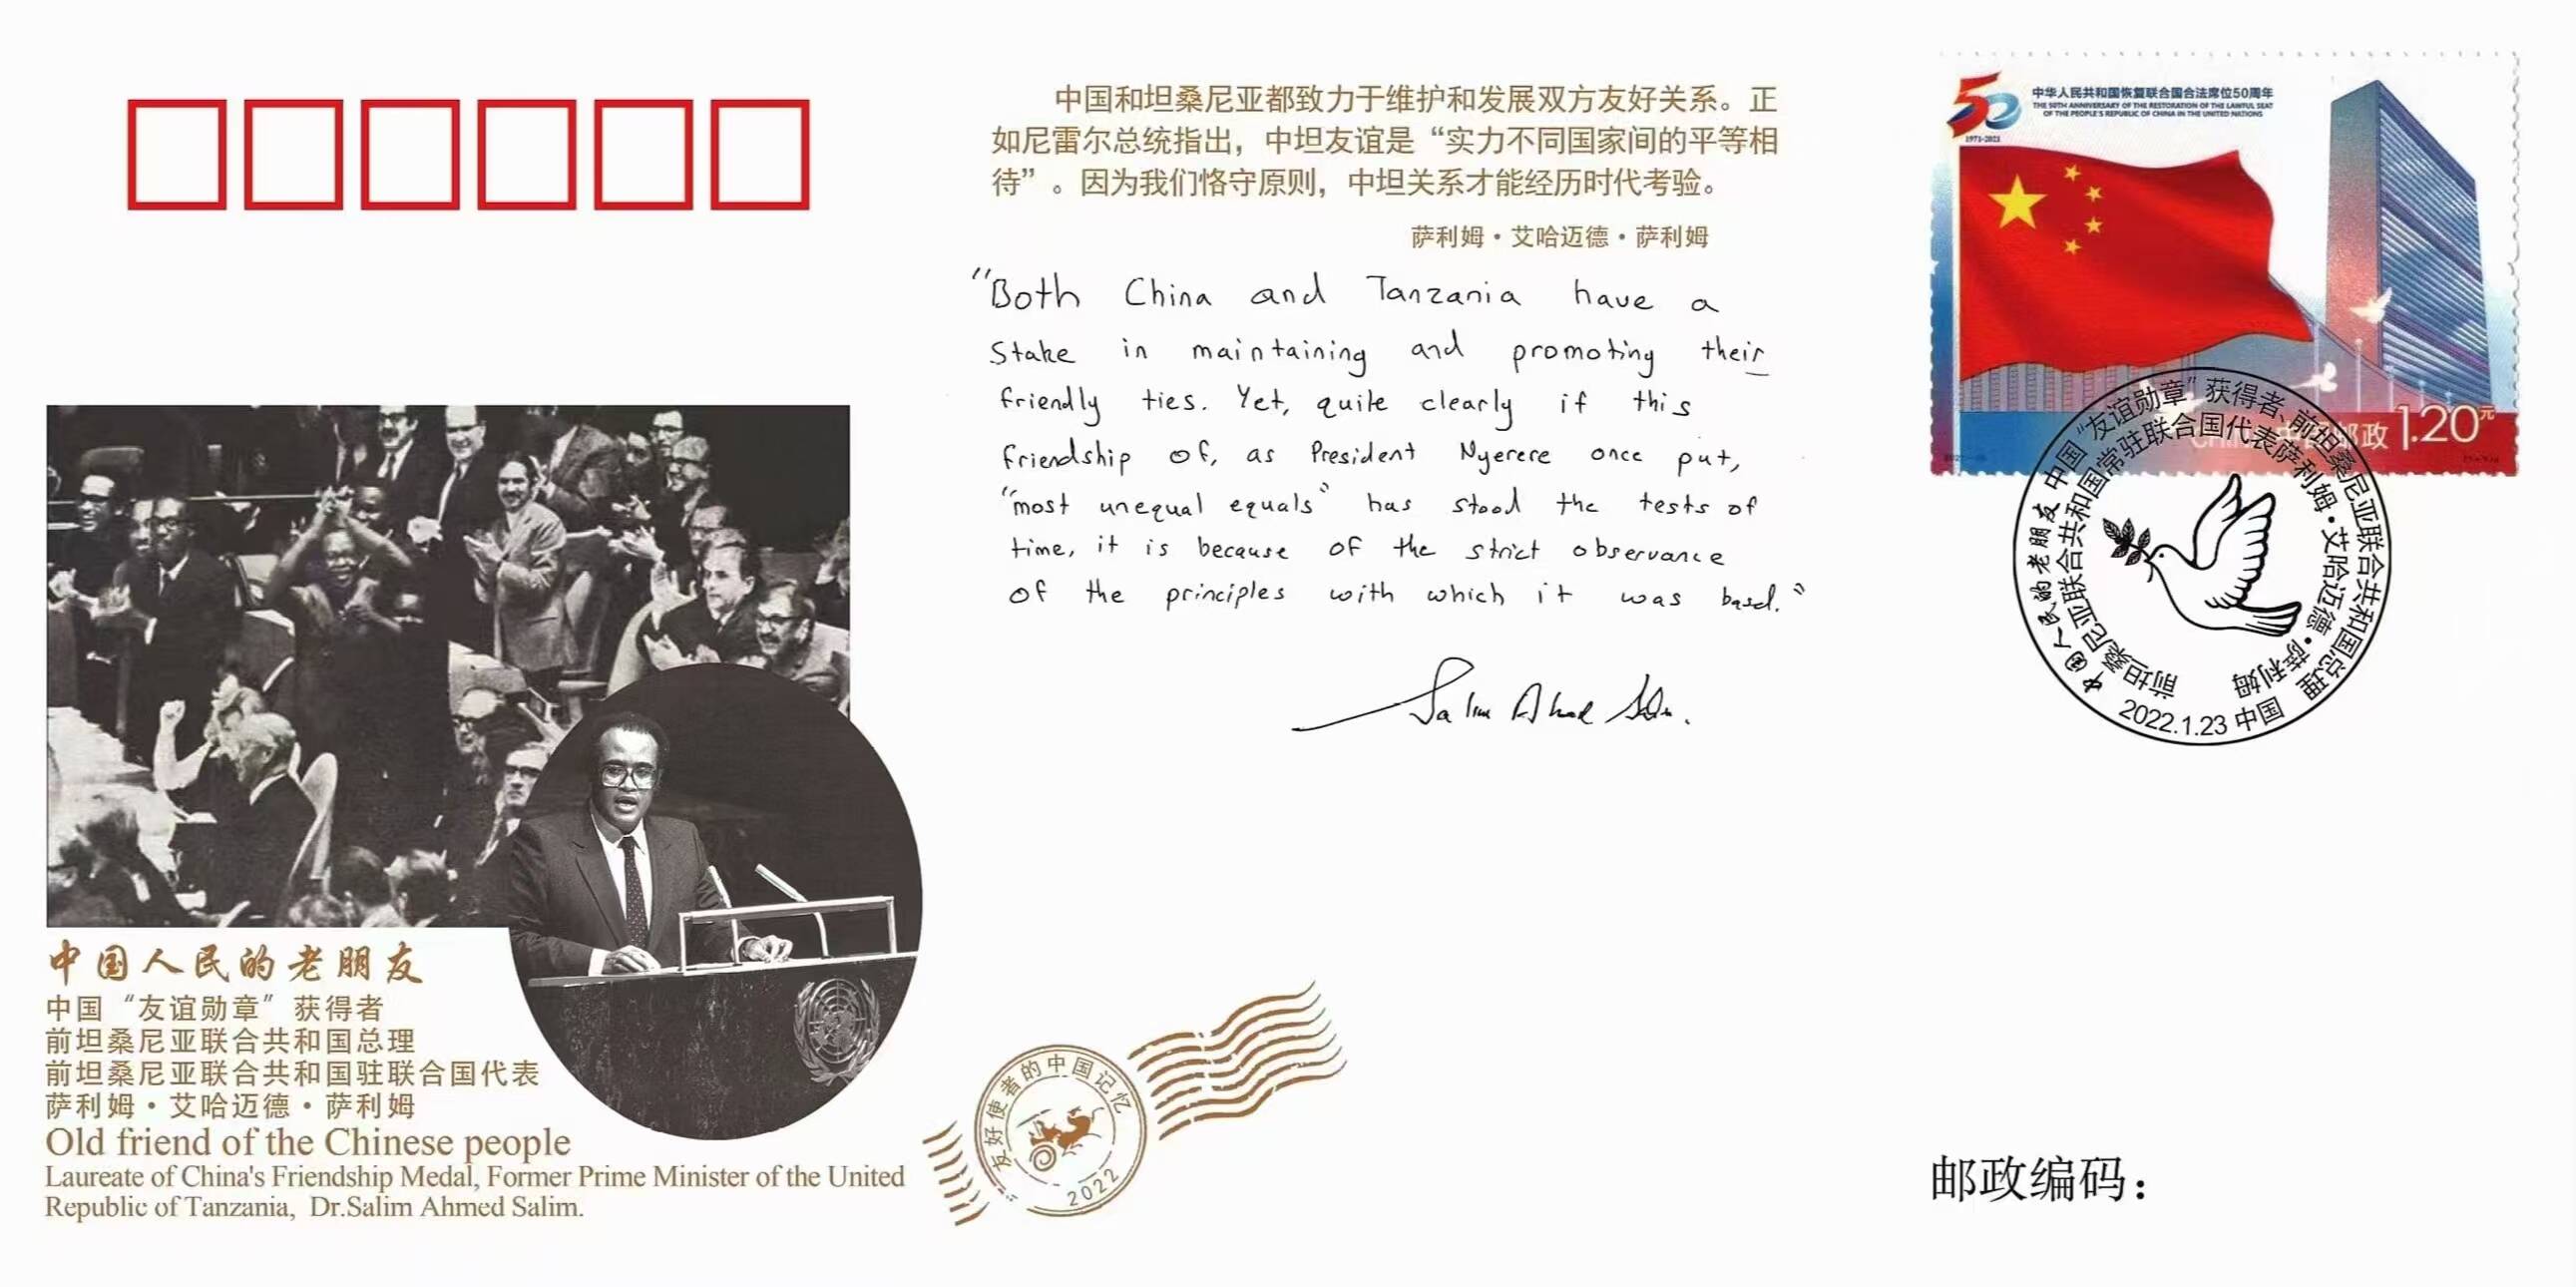 中国和坦桑尼亚都致力于维护和发展双方友好关系。正
如尼雷尔总统指出，中坦友谊是“实力不同国家间的平等相
待”。因为我们恪守原则，中坦关系才能经历时代考验。
萨利姆·艾哈迈德·萨利姆
"Both China and Tanzania have a
stake in maintaining and promoting their
friendly ties. Yet, quite clearly if this
friendship of, as President Nyerere once put,
"most unequal equals" has stood the tests of
time, it is because of the strict observance
of the principles with which it was based."
Salim Ahmed Salim.
50
1971-2021
中华人民共和国恢复联合国合法席位50周年
THE 50TH ANNIVERSARY OF THE RESTORATION OF THE LAWFUL SEAT
OF THE PEOPLE'S REPUBLIC OF CHINA IN THE UNITED NATIONS
中国邮政
1.20元
中国人民的老朋友 中国“友谊勋章”获得者、前坦桑尼亚联合共和国总理
前坦桑尼亚联合共和国常驻联合国代表萨利姆·艾哈迈德·萨利姆
2022.1.23 中国
中国人民的老朋友
中国“友谊勋章”获得者
前坦桑尼亚联合共和国总理
前坦桑尼亚联合共和国驻联合国代表
萨利姆·艾哈迈德·萨利姆
Old friend of the Chinese people
Laureate of China's Friendship Medal, Former Prime Minister of the United
Republic of Tanzania, Dr.Salim Ahmed Salim.
“友好使者的中国记忆
2022
邮政编码：